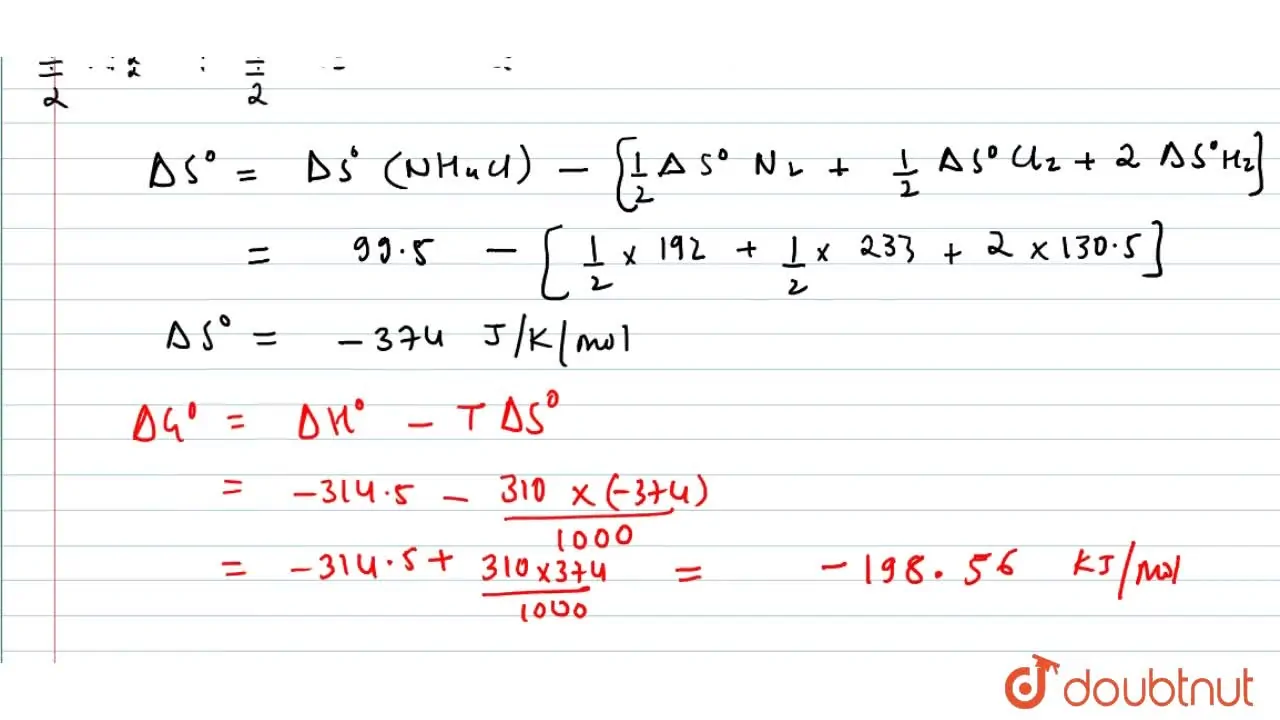 2 2
ΔS° = ΔS° (NH4Cl) – [1/2 ΔS° N2 + 1/2 ΔS° Cl2 + 2 ΔS° H2]
= 99.5 – [1/2 × 192 + 1/2 × 233 + 2 × 130.5]
ΔS° = – 374 J/K/mol
ΔG° = ΔH° – TΔS°
= –314.5 – 310 × (–374)/1000
= –314.5 + 310×374/1000 = – 198.56 KJ/mol
doubtnut